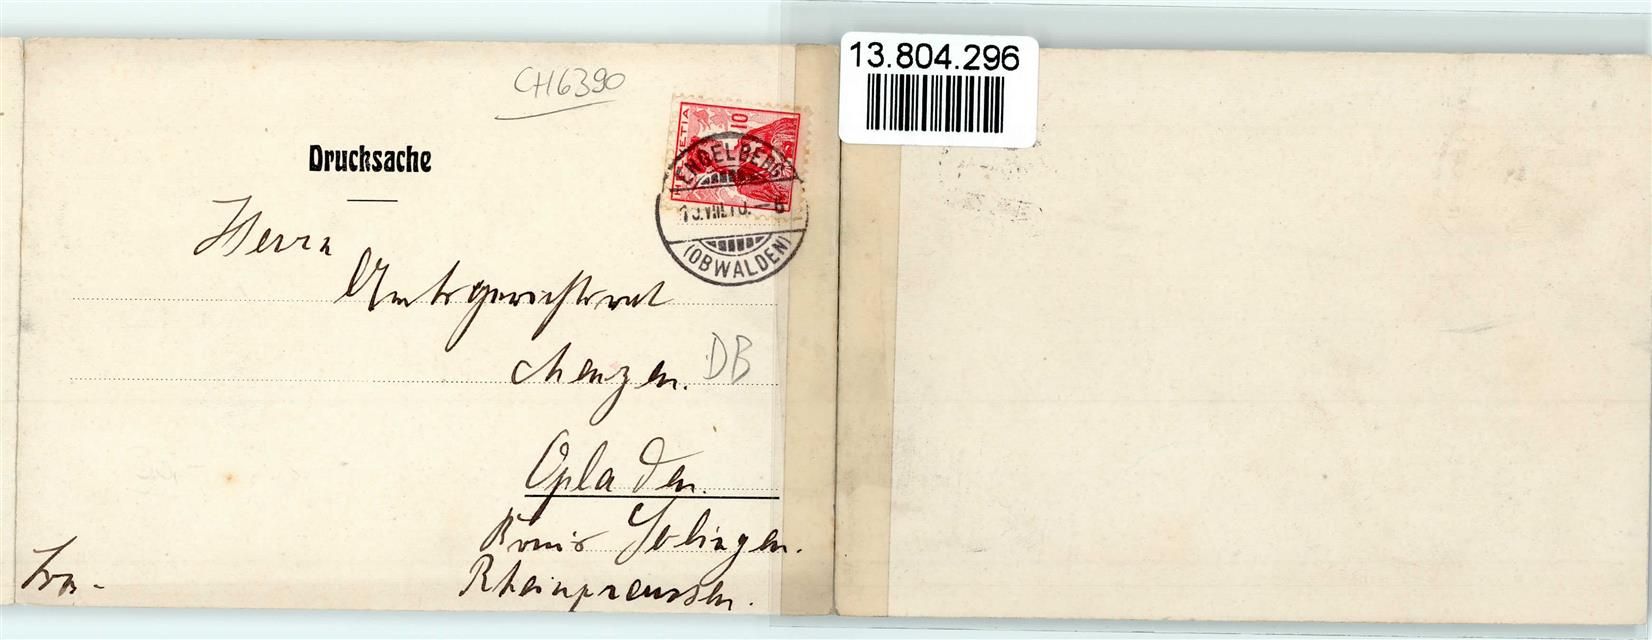 13.804.296
CH6390
HELVETIA
10
ENGELBERG
VIII.10.–6
(OBWALDEN)
Drucksache
Herrn
Amtsgerichtsrat
Menzen.
DB
Opladen.
Kreis Solingen.
Rheinpreussen.